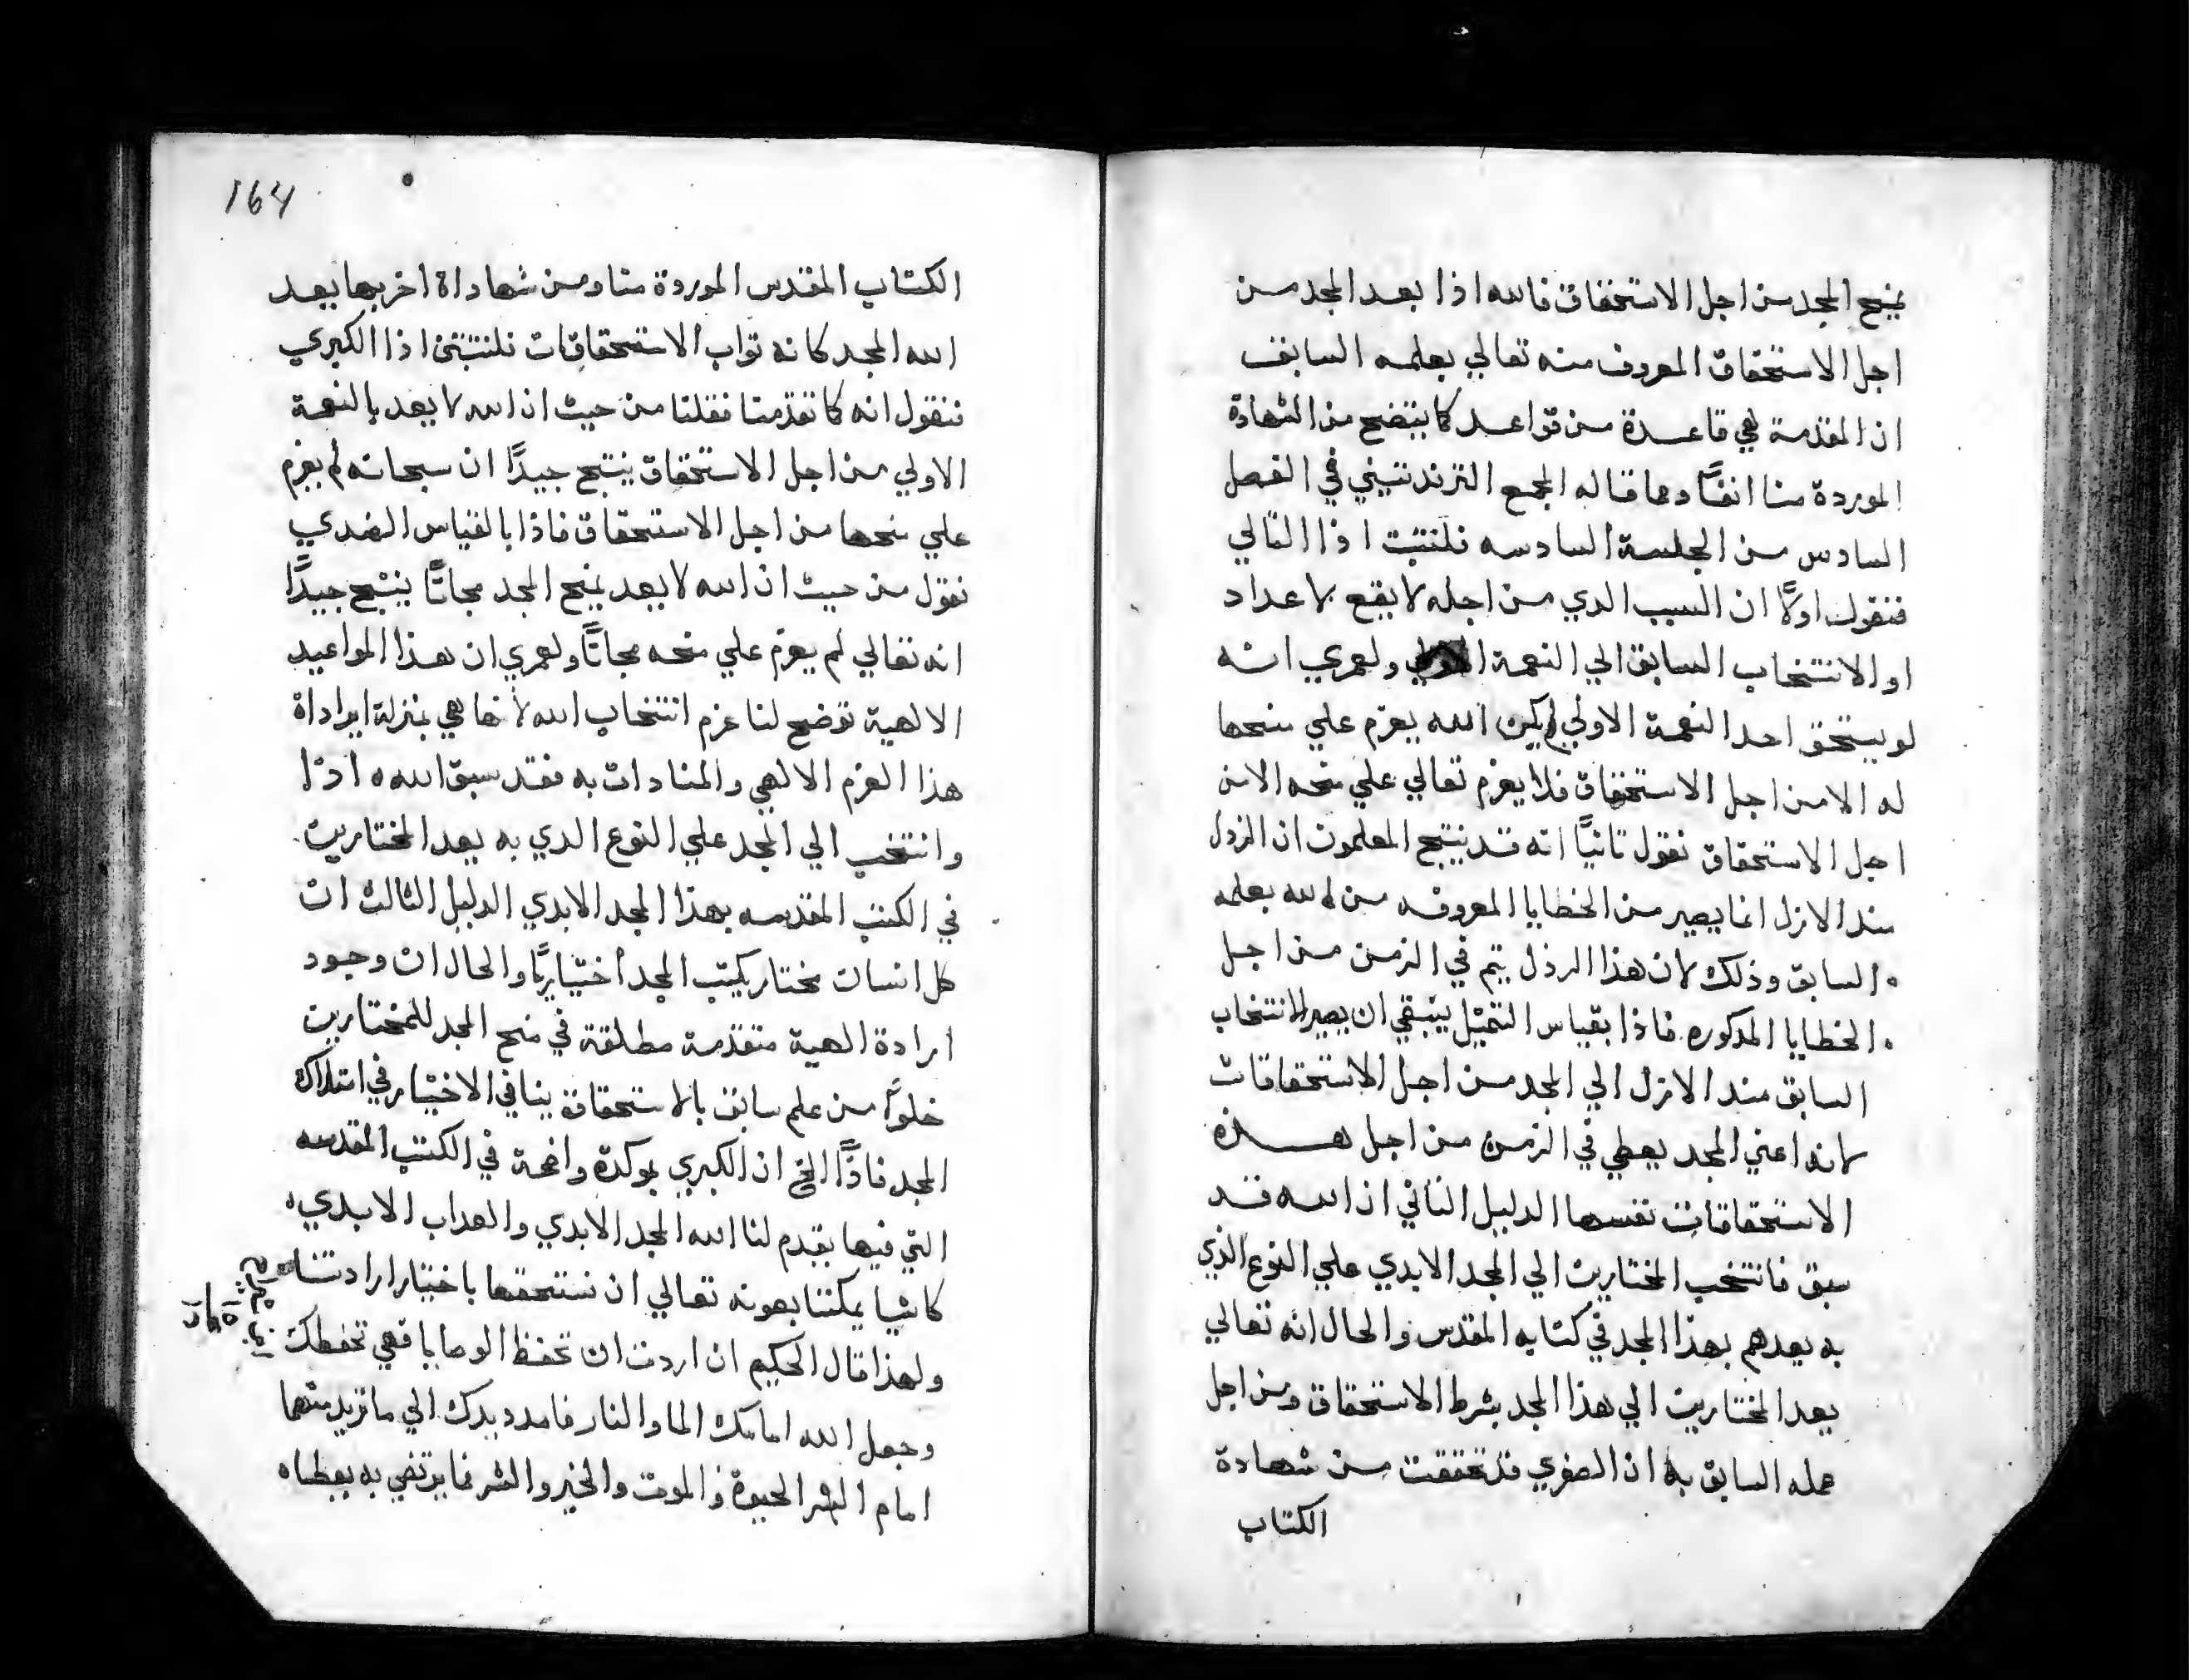 يمنح المجد من اجل الاستحقاق فالله اذا بعد المجد من
اجل الاستحقاق المعروف منه تعالي بعلمه السابق
ان المقدمة هي قاعدة من قواعد كما يتضح من الشهادة
الموردة منا انفًا ومما قاله المجمع التريدنتيني في الفصل
السادس من الجلسة السادسه فلنثبت اذا التالي
فنقول اولًا ان السبب الدي من اجله لا يقع الاعداد
او الانتخاب السابق الي النعمة الاولي ولعمري انه
لو يستحق احد النعمة الاولي لم يكن الله يعزم علي منحها
له الا من اجل الاستحقاق فلا يعزم تعالي علي منحه الا من
اجل الاستحقاق نقول تانيًا انه قد ينتج المعلمون ان الردل
مند الازل انما يصير من الخطايا المعروفه من الله بعلمه
السابق وذلك لان هذا الرذل يتم في الزمن من اجل
الخطايا المدكوره فاذا بقياس التمثيل ينبغي ان يصير الانتخاب
السابق مند الازل الي المجد من اجل الاستحقاقات
لانه اعني المجد يعطي في الزمن من اجل هذه
الاستحقاقات نفسها الدليل التاني ان الله قد
سبق فانتخب المختارين الي المجد الابدي علي النوع الذي
به يعدهم بهذا المجد في كتابه المقدس والحال انه تعالي
يعد المختارين الي هذا المجد بشرط الاستحقاق ومن اجل
عمله السابق به ان الصغري قد تحققت من شهادة
الكتاب
164
الكتاب المقدس الموردة منا ومن شهاداة اخر بها يعد
الله المجد كانه تواب الاستحقاقات فلنثبتن اذا الكبري
فنقول انه كما تقدمنا فقلنا من حيث ان الله لا يعد بالنعمة
الاولي من اجل الاستحقاق ينتج جيدًا ان سبحانه لم يعزم
علي منحها من اجل الاستحقاق فاذا بالقياس الضدي
نقول من حيث ان الله لا يعد يمنح المجد مجانًا ينتج جيدًا
انه تعالي لم يعزم علي منحه مجانًا ولعمري ان هذا المواعيد
الالهية توضح لنا عزم انتخاب الله لانها هي بمنزلة ايراداة
هذا العزم الالهي والمنادات به فقد سبق الله اذا
وانتخب الي المجد علي النوع الدي به يعد المختارين
في الكتب المقدسه بهذا المجد الابدي الدليل الثالث ان
كل انسان مختار يكتسب المجد اختياريًا والحال ان وجود
ارادة الهية متقدمة مطلقة في منح المجد للمختارين
خلوًا من علم سابق بالاستحقاق ينافي الاختيار في امتلاك
المجد فاذًا الخ ان الكبري موكدة واضحة في الكتب المقدسه
التي فيها يقدم لنا الله المجد الابدي والعداب الابدي
كاشيا يمكننا بعونه تعالي ان نستحقها باختيار ارادتنا
ولهذا قال الحكيم ان اردت ان تحفظ الوصايا فهي تحفظك
وجعل الله امامك الما والنار فامدد يدك الي ما تريد منهما
امام البشر الحيوة والموت والخير والشر فما يرتضي به يعطاه